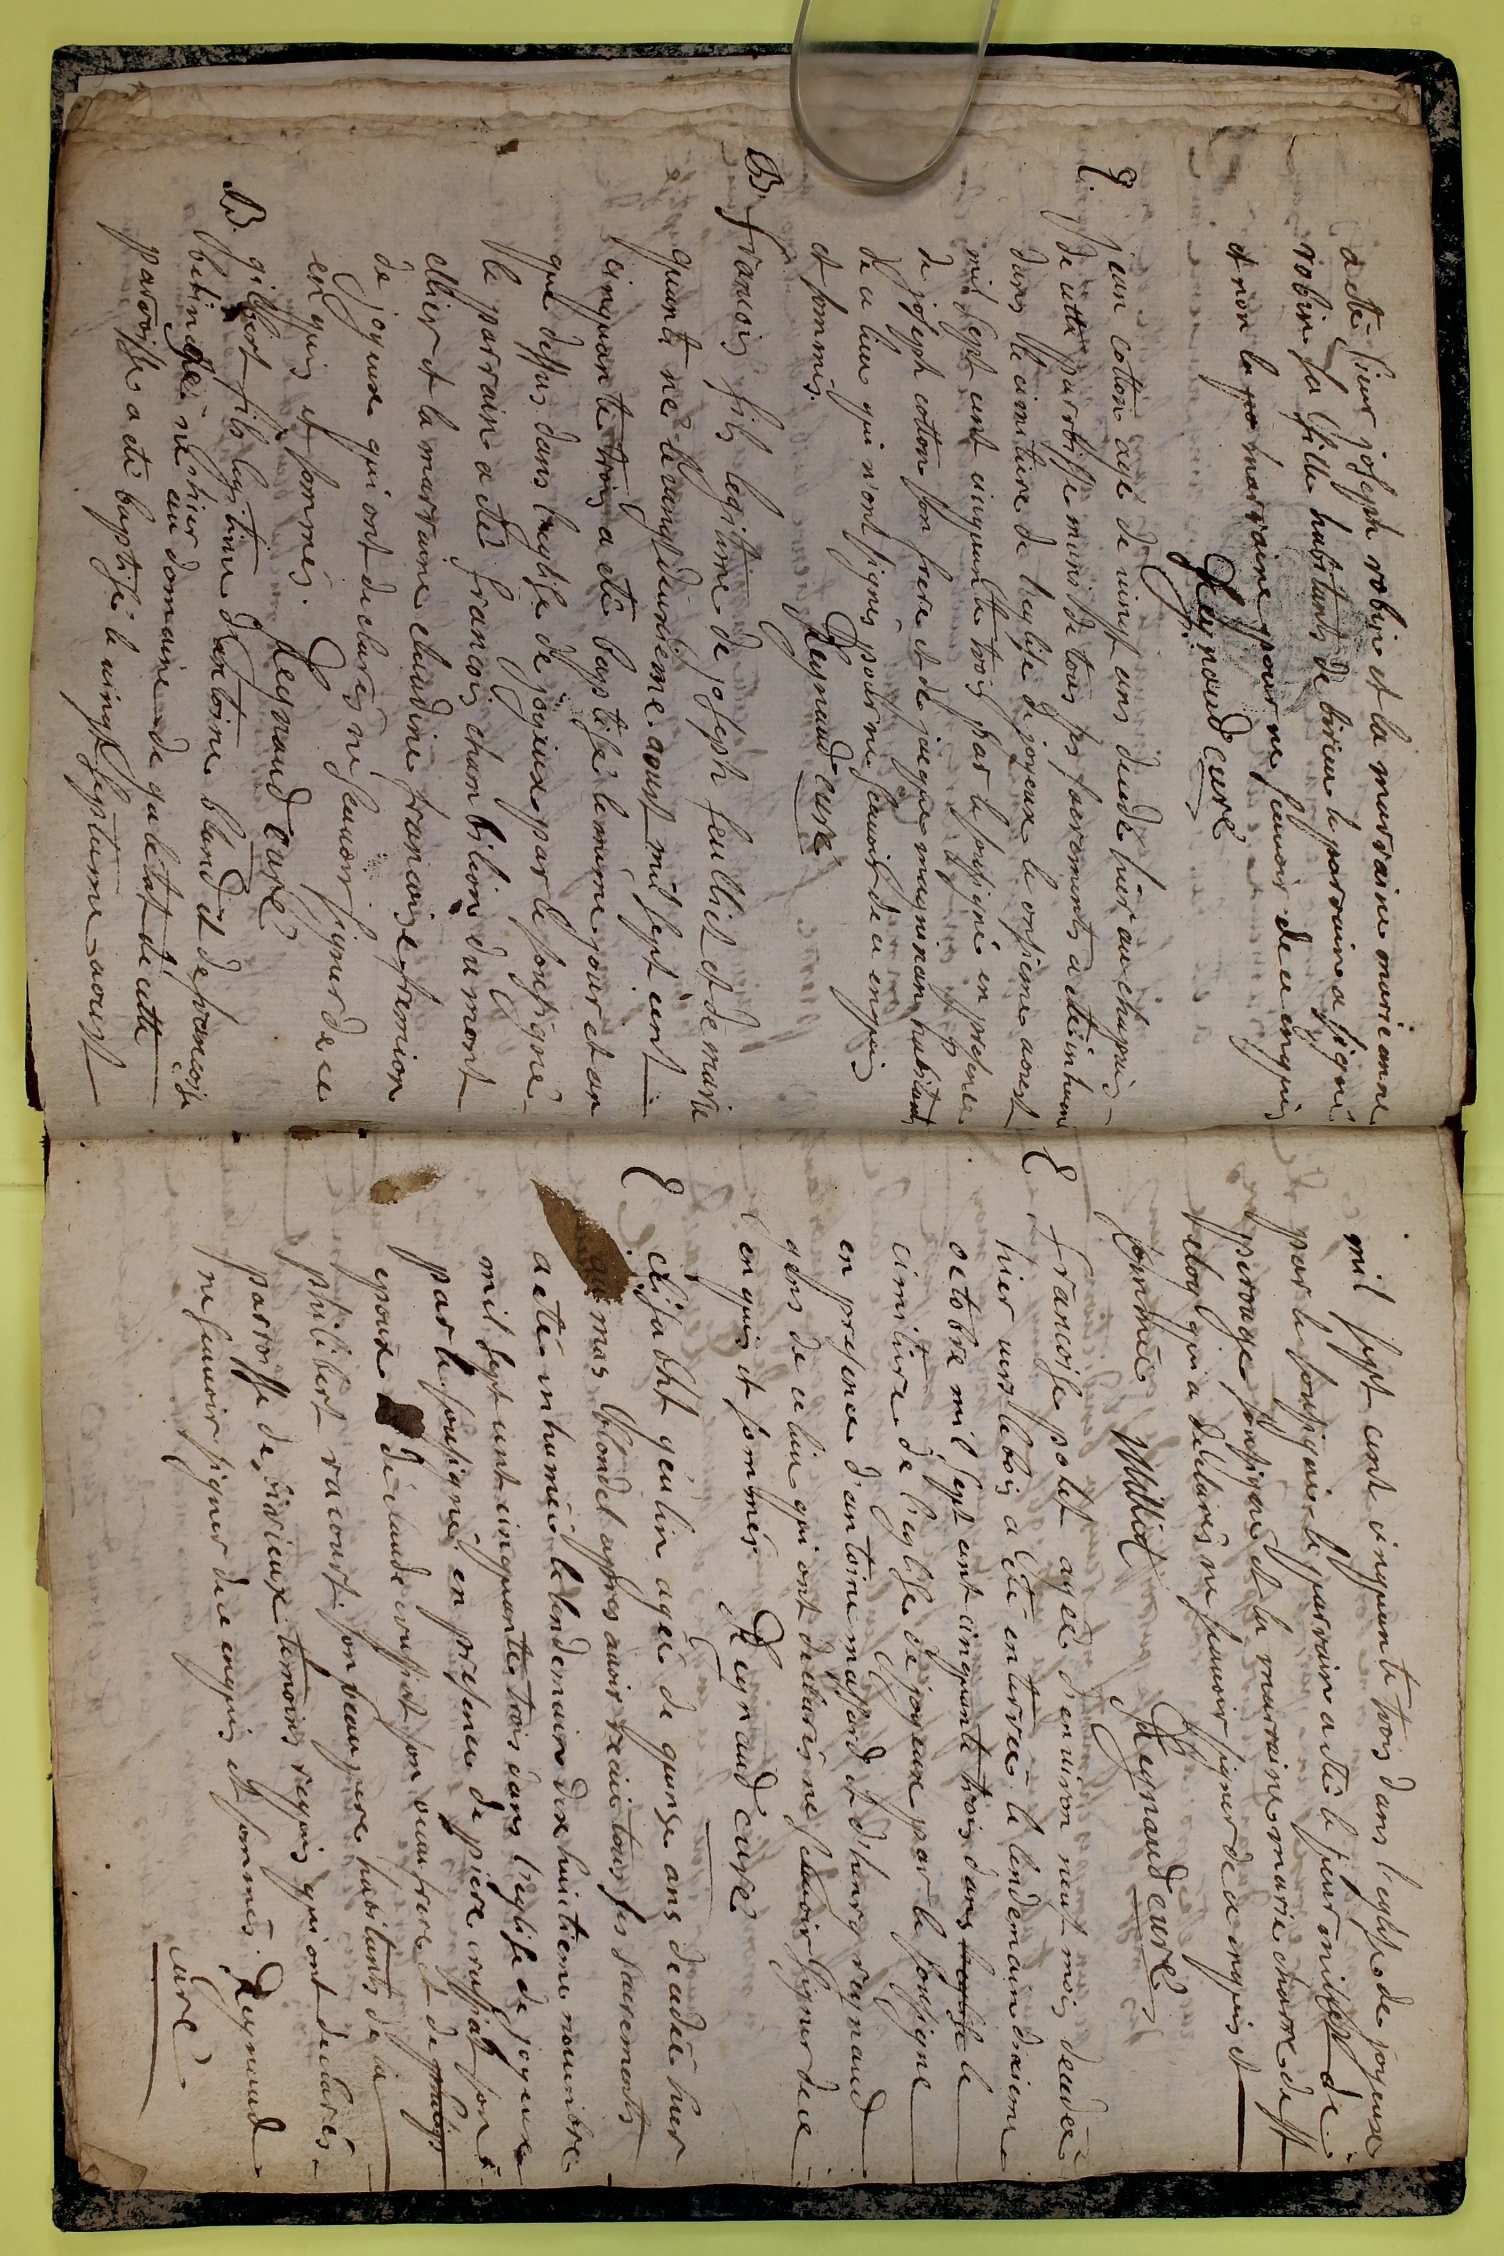 a eté sieur joseph robin et la marraine marie anne
robin sa fille habitants de birieu le parrain a signé
et non la marraine pour ne scauoir de ce enquis
Reynaud curé
E
jean cotton agé de vingt ans decedé hier au chapuis
de cette parroisse muni de tous ses sacrements a eté inhumé
dans le cimitiere de l'eglise de joyeux le onsieme aoust
mil sept cent cinquante trois par le sousigné en presence
de joseph cotton son frere et de habitants
de ce lieu qui n'ont signés pour ne scauoir de ce enquis
et sommés. Reynaud curé
B. francois fils legitime de joseph feulliet et de marie
né le vangt deuxieme aoust mil sept cent
cinquante trois a eté baptisé le meme jour et an
que dessus dans l'eglise de joyeux par le sousigné
le parrain a eté francois chambilion du mont
ellier et la marraine claudine francoise fremion
de joyeux qui ont declarés ne scauoir signer de ce
enquis et sommés. Reynaud curé
B. gilbert fils legitime d'antoine bland et de francoise
né hier au domaine de de cette
parroisse a eté baptisé le vingt septieme aoust
mil sept cent cinquante trois dans l'eglise de joyeux
par le sousigné le parrain a eté le sieur millet de
perouge sousigné et la marraine marie
qui a declarés ne scauoir signer de ce enquis et
sommée Millet Reynaud curé
E francoise polet agée d'enuiron neuf mois decedée
hier uers le bois a eté enterrée le lendemain dixieme
octobre mil sept cent cinquante trois dans le
cimitiere de l'eglise de joyeux par le sousigné
en presence d'antoine massard et d'henry reynaud
gens de ce lieu qui ont declarés ne scauoir signer de ce
enquis et sommés Reynaud curé
E elisabht geulin agée de quinze ans decedée hier
mas blondel apres auoir recu tous ses sacrements
a eté inhumée le lendemain dix huitieme nouembre
mil sept cent cinquante trois dans l'eglise de joyeux
par le sousigné en presence de piere son
epoux de claude son beaufrere et de
philibert racourt son beaupere habitants de
parroisse de birieux temoins requis qui ont declarés
ne scauoir signer de ce enquis et sommés. Reynaud
curé